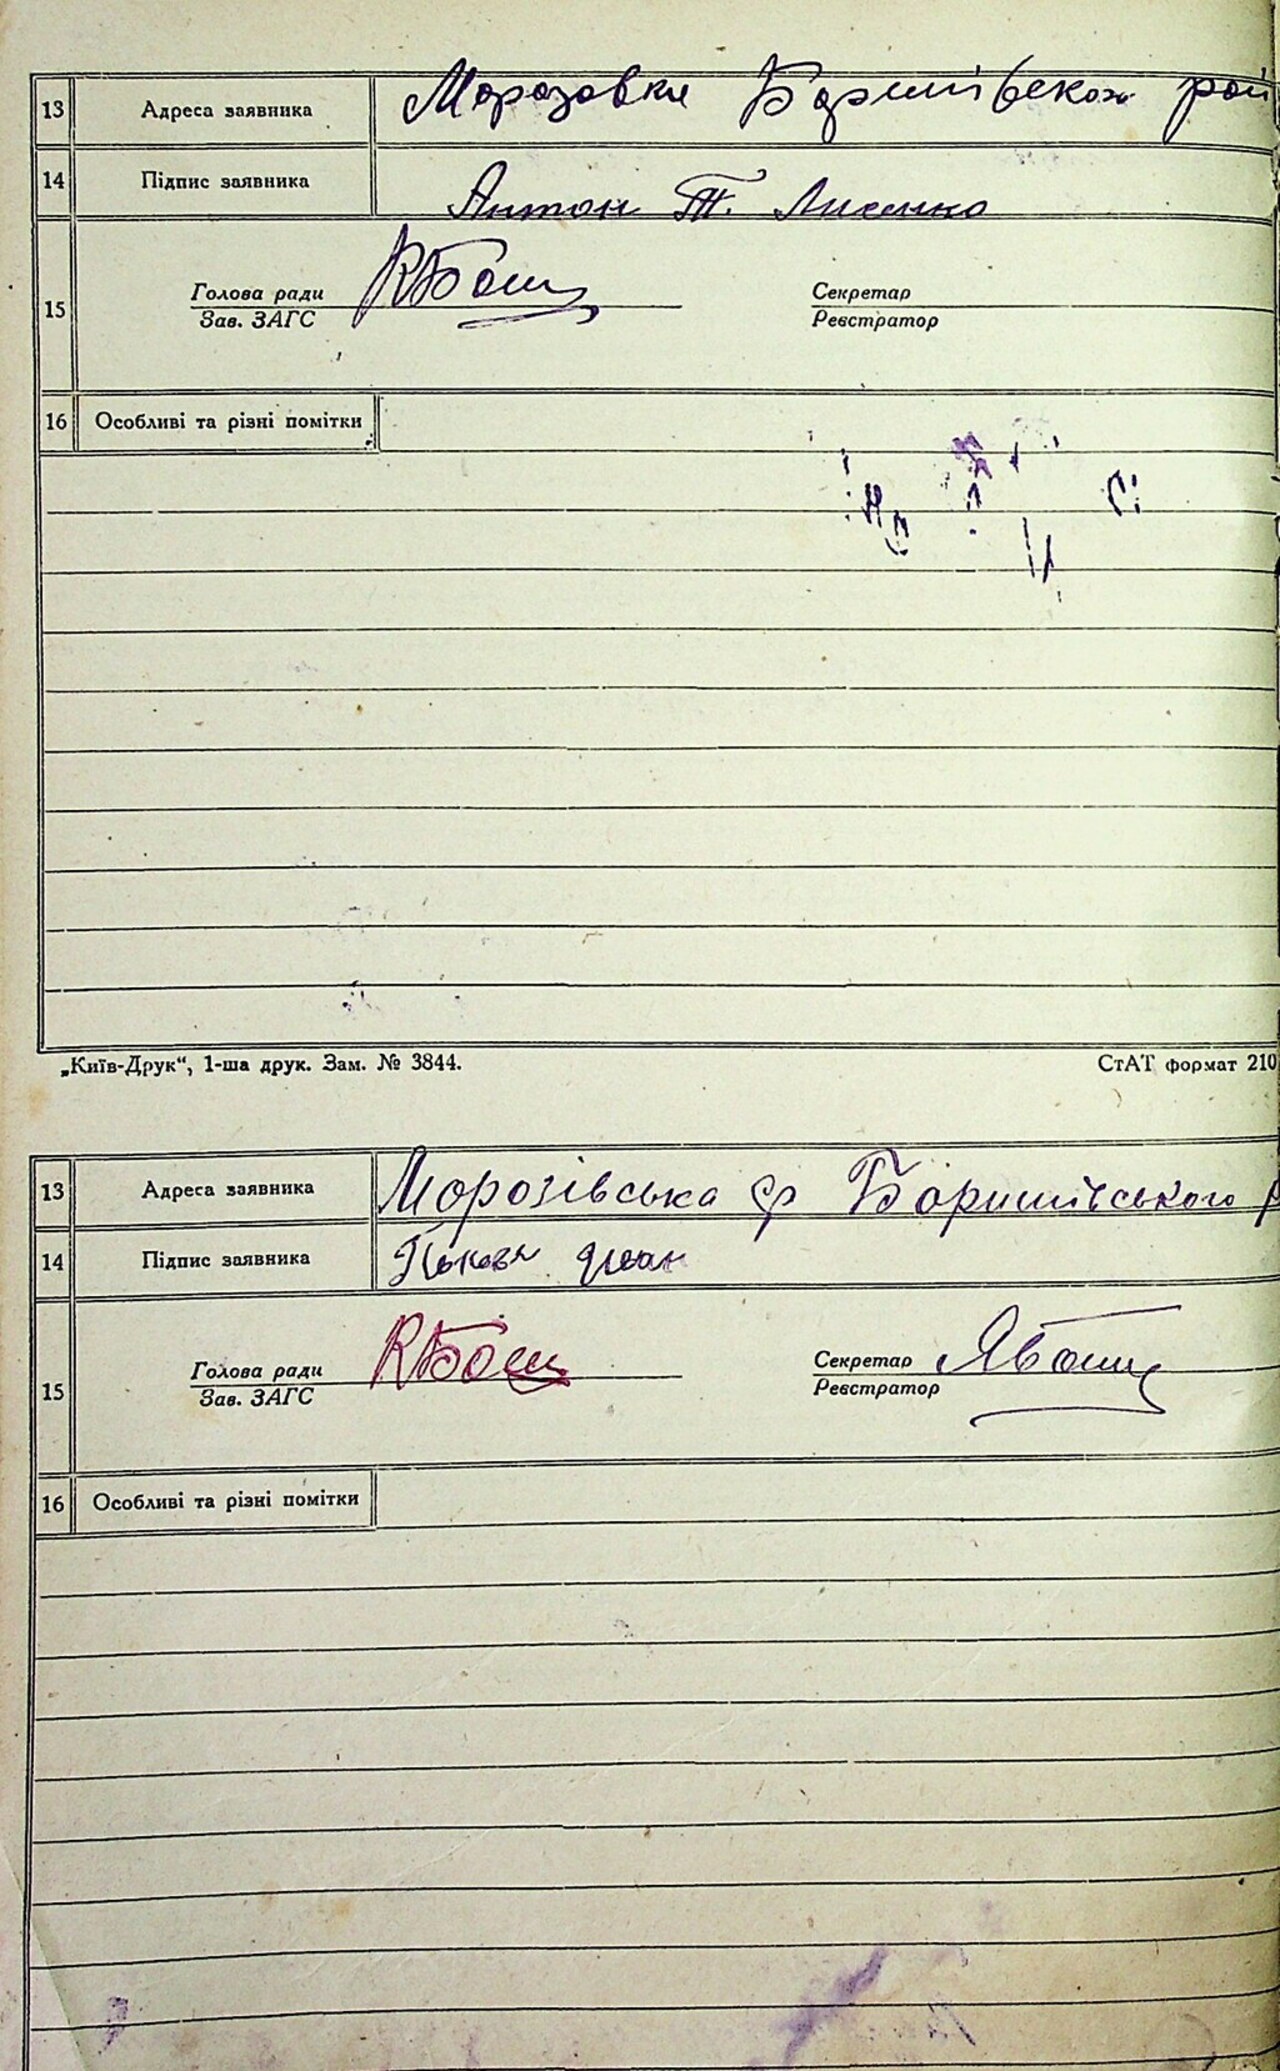 13 Адреса заявника Морозовка Баришівського рай
14 Підпис заявника Антон Т. Лисенко
15 Голова ради КБош Секретар
Зав. ЗАГС Реєстратор
16 Особливі та різні помітки
„Київ-Друк“, 1-ша друк. Зам. № 3844. СтАТ формат 210
13 Адреса заявника Морозівська с/р Баришівського р
14 Підпис заявника Іван
15 Голова ради КБош Секретар ЯБош
Зав. ЗАГС Реєстратор
16 Особливі та різні помітки